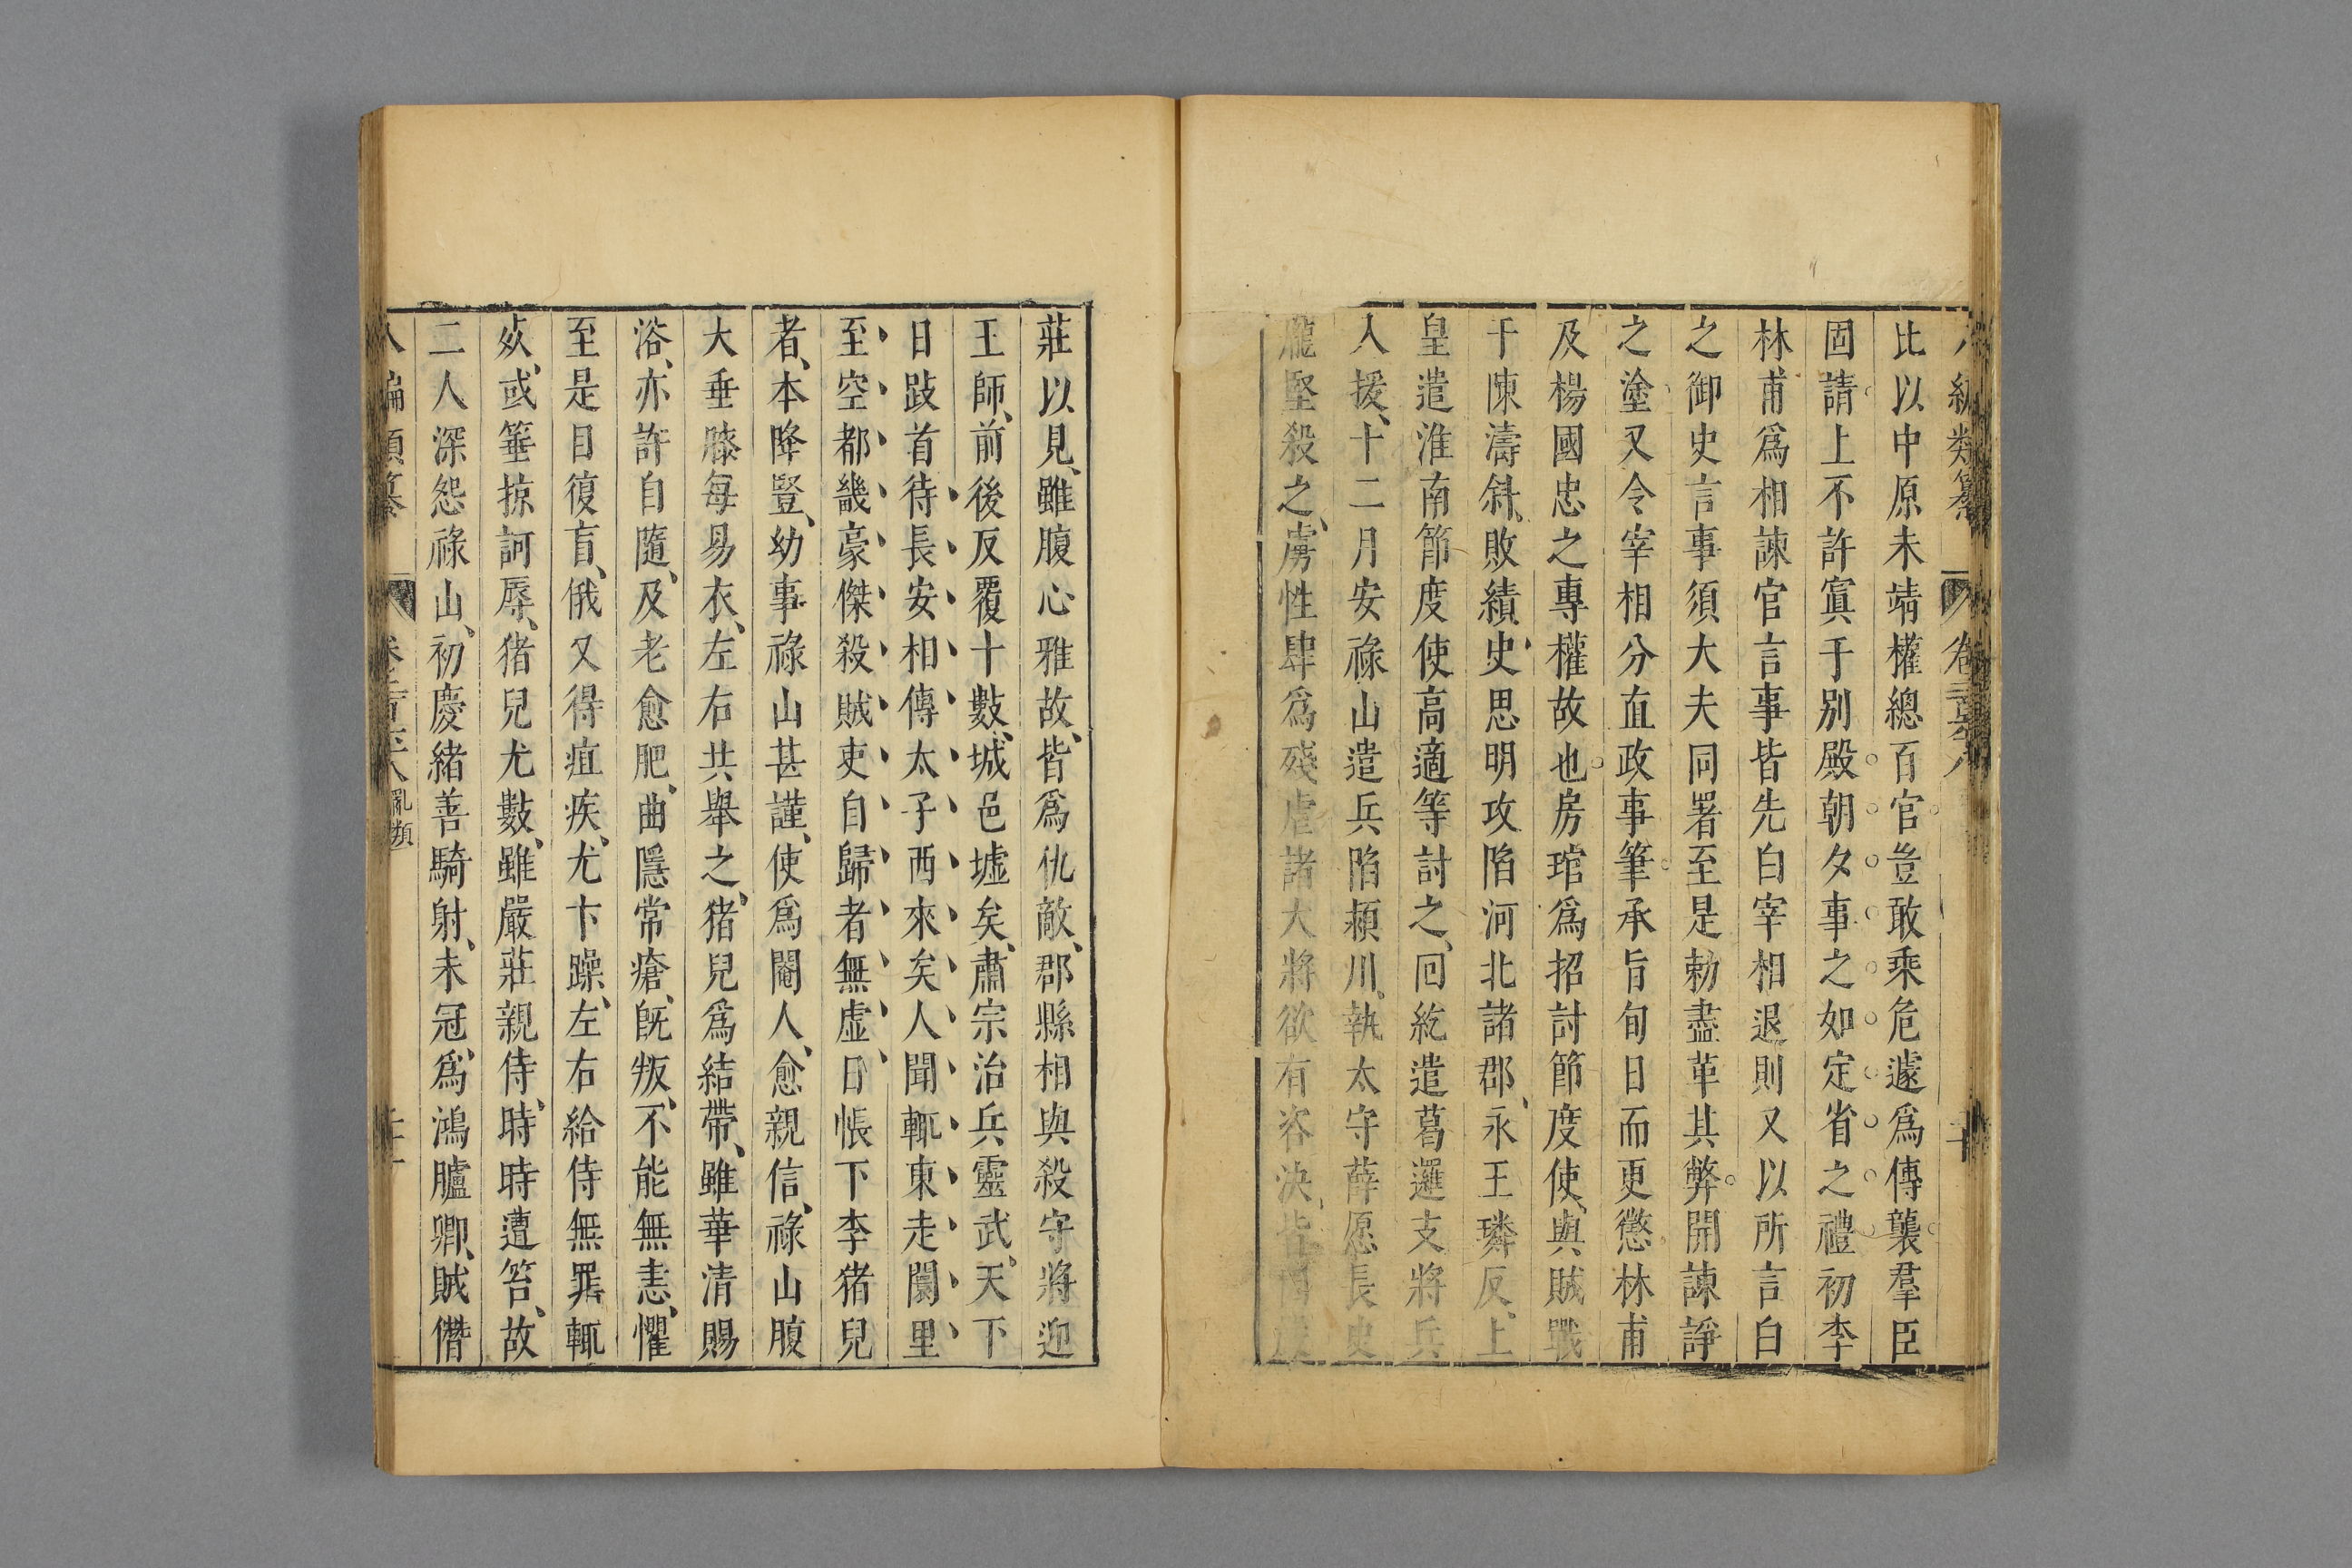 編類纂 卷
比以中原未靖權總百官豈敢乘危遽爲傳襲羣臣
固請上不許寘于別殿朝夕事之如定省之禮初李
林甫爲相諫官言事皆先白宰相退則又以所言白
之御史言事須大夫同署至是勅盡革其弊開諫諍
之塗又令宰相分直政事筆承旨旬日而更懲林甫
及楊國忠之專權故也房琯爲招討節度使與賊戰
于陳濤斜敗績史思明攻陷河北諸郡永王璘反上
皇遣淮南節度使高適等討之回紇遣葛邏支將兵
入援十二月安祿山遣兵陷潁川執太守薛愿長史
龐堅殺之虜性肆爲殘虐諸大將欲有咨決皆因嚴
莊以見雖腹心雅故皆爲仇敵郡縣相與殺守將迎
王師前後反覆十數城邑墟矣肅宗治兵靈武天下
日跂首待長安相傳太子西來矣人聞輒東走闤里
至空都畿豪傑殺賊吏自歸者無虛日帳下李猪兒
者本降豎幼事祿山甚謹使爲閹人愈親信祿山腹
大垂膝每易衣左右共舉之猪兒爲結帶雖華清賜
浴亦許自隨及老愈肥曲隱常瘡旣叛不能無恚懼
至是目復盲俄又得疽疾尤卞躁左右給侍無罪輒
死或箠掠訶辱猪兒尤數雖嚴莊親侍時時遭笞故
二人深怨祿山初慶緒善騎射未冠爲鴻臚卿賊僭
八編類纂 亂類